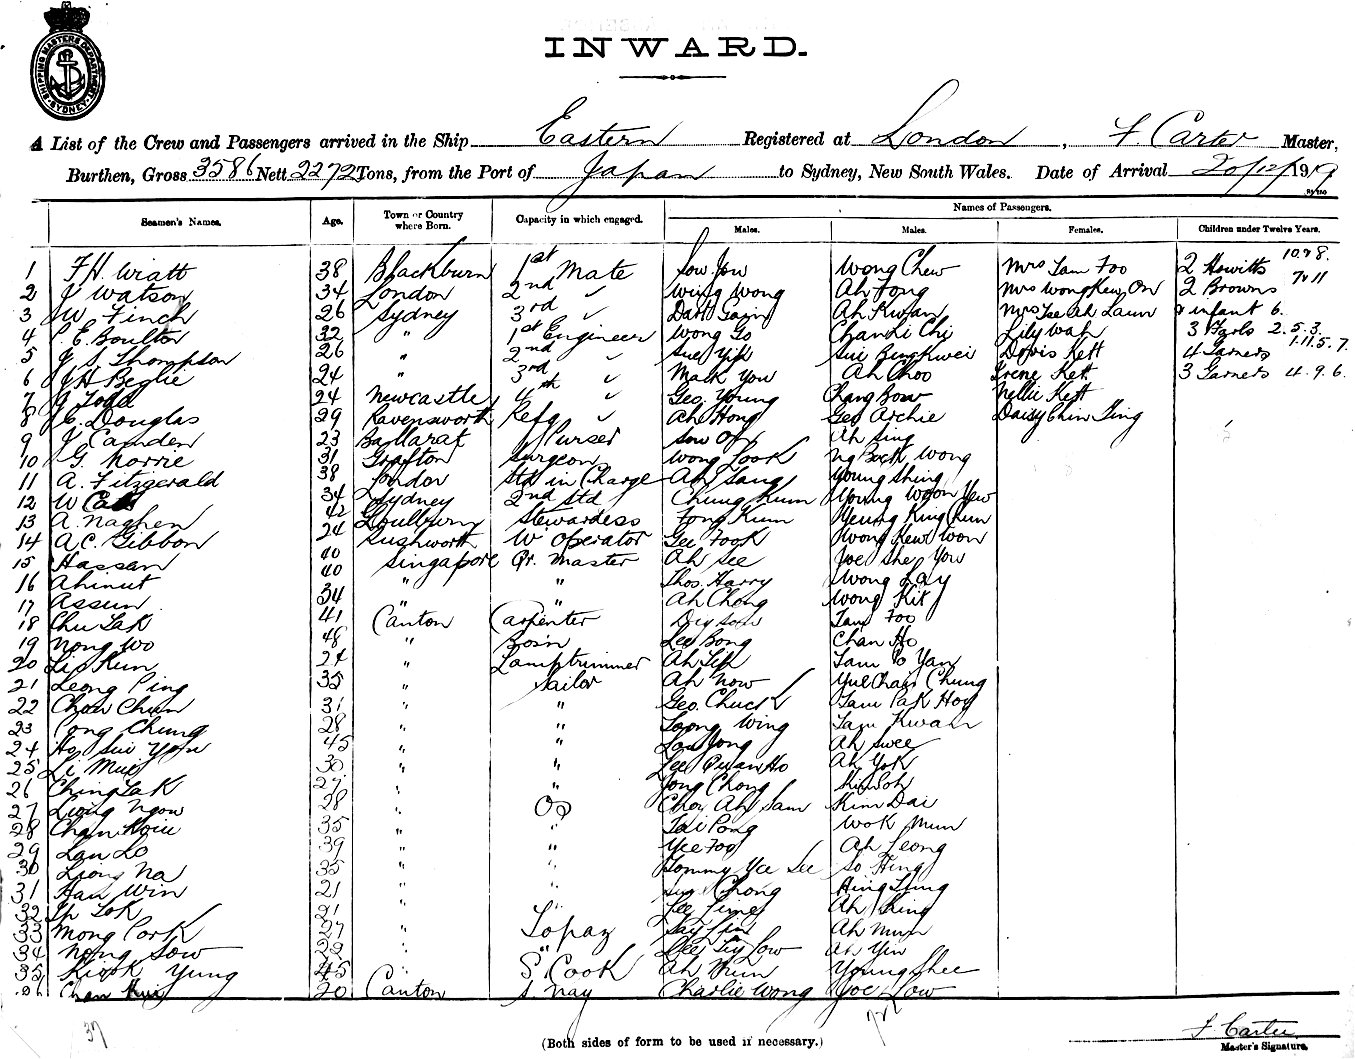 SHIPPING MASTERS DEPARTMENT SYDNEY
INWARD.
A List of the Crew and Passengers arrived in the Ship Eastern Registered at London, F. Carter Master,
Burthen, Gross 3586 Nett 2272 Tons, from the Port of Japan to Sydney, New South Wales. Date of Arrival 20/12/1919
Names of Passengers.
Seamen's Names. Age. Town or Country where Born. Capacity in which engaged. Males. Males. Females. Children under Twelve Years.
1 F.H. Wiatt 38 Blackburn 1st Mate Low Jow Wong Chew Mrs Tam Foo 2 Howitts 10 & 8.
2 J Watson 34 London 2nd " Wing Wong Ah Fong Mrs Wong Kew On 2 Browns 7 & 11
3 W. Finch 26 Sydney 3rd " Ah Kwan infant 6.
4 C. E. Boulton 32 " 1st Engineer Wong Go Chan Ki Chi Lily Wah 3 2.5.3.
5 J S Thompson 26 " 2nd " Sue Yik Sue Bing Kwei Doris Kett 4 Garners 1.11.5.7.
6 J H Beglie 24 " 3rd " Mack You Ah Choo Irene Kett 3 Garners 4.9.6.
7 J Todd 24 Newcastle 4th " Geo. Young Chang Bow Nellie Kett
8 J.C. Douglas 29 Ravensworth Refg " Ah Hong Geo Archie Daisy Chin Hing
9 J Camden 23 Ballarat Purser Sow On Ah Sing
10 G. Norrie 31 Grafton Surgeon Wong Fook Ng Bock Wong
11 A. Fitzgerald 38 London Std in Charge Ah Sang Young Shing
12 W 34 Sydney 2nd Std Chung Kum Young Woon Yew
13 A. Naghen 42 Goulburn Stewardess Fong Kum Yeung King Chun
14 A.C. Gibbon 24 Rushworth W Operator Gee Fook Wong Kew Woon
15 Hassan 40 Singapore Qr. Master Ah See Joe She You
16 Ahinut 40 " " Thos. Harry Wong Lay
17 Assun 34 " Ah Chong Wong Kit
18 Chu Tak 41 Canton Carpenter Tam Foo
19 Nong Wo 48 " Bosn Lee Bong Chan Ho
20 Lip Kun 24 " Lamptrimmer Ah Lip Tam Yan
21 Leong Ping 35 " Sailor Ah Now Yue Chan Chung
22 Chow Chun 31 " " Geo. Chuck Tam Pak Hoy
23 Cong Chung 28 " " Loong Wing Tam Kwan
24 Ho Sue Yow 45 " " Low Jong Ah Swee
25 Li Mui 30 " " Lee Pwan Ho Ah Yok
26 Ching Tak 27 " " Jong Chong
27 Liong Ngow 28 " OS Chow Ah Sam Kim Dai
28 Chan Koiu 35 " " Tai Pong Wok Mun
29 Lan Lo 39 " " Yee Foo Ah Leong
30 Liong Na 35 " " Tommy Yee See So Hing
31 Han Win 21 " " Sue Chong Hing Lung
32 Ip Lok 21 " " Lee Lime Ah King
33 Mong Cork 27 " Topaz Say Lin Ah Mun
34 Nong Sow 29 " " Lee Tiy Low Ah Yin
35 Kwok Yung 45 " S. Cook Ah Mun Young Shee
36 Chan Kui 20 Canton S. Nay Charlie Wong Yoe Low
37
(Both sides of form to be used if necessary.)
F. Carter
Master's Signature.